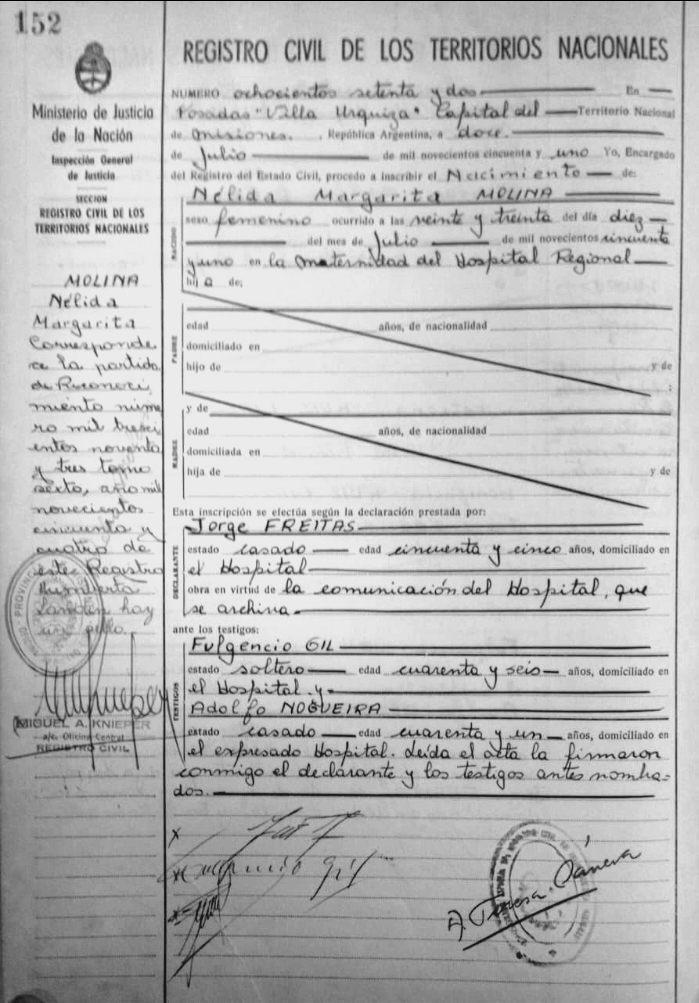 152
REGISTRO CIVIL DE LOS TERRITORIOS NACIONALES
Ministerio de Justicia
de la Nación
Inspección General
de Justicia
SECCION
REGISTRO CIVIL DE LOS
TERRITORIOS NACIONALES
MOLINA
Nélida
Margarita
Corresponde
a la partida
de Reconoci
miento núme
ro mil tresci
entos noventa
y tres tomo
sexto, año mil
novecientos
cincuenta y
cuatro de
este Registro
hay
un sello.
MIGUEL A. KNIEPER
a/c. Oficina Central
REGISTRO CIVIL
NUMERO ochocientos setenta y dos En
Posadas "Villa Urquiza" Capital del Territorio Nacional
de Misiones. República Argentina, a doce.
de Julio de mil novecientos cincuenta y uno Yo, Encargado
del Registro del Estado Civil, procedo a inscribir el Nacimiento de:
NACIDO
Nélida Margarita MOLINA
sexo femenino ocurrido a las veinte y treinta del día diez
del mes de Julio de mil novecientos cincuenta
y uno en la Maternidad del Hospital Regional
hija de;
PADRE
edad años, de nacionalidad
domiciliado en
hijo de y de
;
MADRE
y de
edad años, de nacionalidad
domiciliada en
hija de y de
Esta inscripción se efectúa según la declaración prestada por:
DECLARANTE
Jorge FREITAS
estado casado edad cincuenta y cinco años, domiciliado en
el Hospital
obra en virtud de la comunicación del Hospital, que
se archiva.
ante los testigos:
TESTIGOS
Fulgencio GIL
estado soltero edad cuarenta y seis años, domiciliado en
el Hospital y
Adolfo NOGUEIRA
estado casado edad cuarenta y un años, domiciliado en
el expresado Hospital. Leída el acta la firmaron
conmigo el declarante y los testigos antes nombra=
dos.
x
x
x